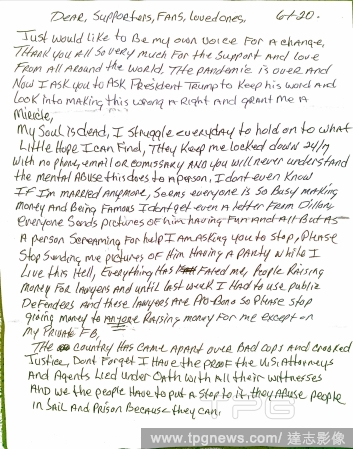 Dear, Supporters, Fans, Lovedones, 6-1-20.
Just would like to be my own voice for a change,
Thank you all so very much for the support and love
from all around the world. The pandemic is over and
Now I ask you to ask President Trump to keep his word and
Look into making this wrong a Right and grant me a
Miracle,
My Soul is dead, I struggle everyday to hold on to what
Little Hope I can find, They keep me locked down 24/7
with no phone, email or comissary and you will never understand
the mental abuse this does to a person, I dont even know
If I'm married anymore, Seems everyone is so Busy making
Money and Being Famous I dont get even a letter from Dillon,
Everyone Sends pictures of him having fun and all But as
A person Screaming for help I am asking you to stop, please
Stop sending me pictures of him Having a party while I
Live this Hell, Everything has Fated me, people Raising
Money for Lawyers and until last week I Had to use public
Defenders and these lawyers are pro-Bono so please stop
giving money to Anyone Raising money for me except on
my private FB,
The country has came apart over Bad cops and crooked
Justice, Dont Forget I Have the proof the U.S. Attorneys
and Agents Lied under Oath with all their witnesses
And we the people Have to put a stop to it, they Abuse people
in Jail and Prison Because they can,
TPG
www.tpgnews.com / 達志影像